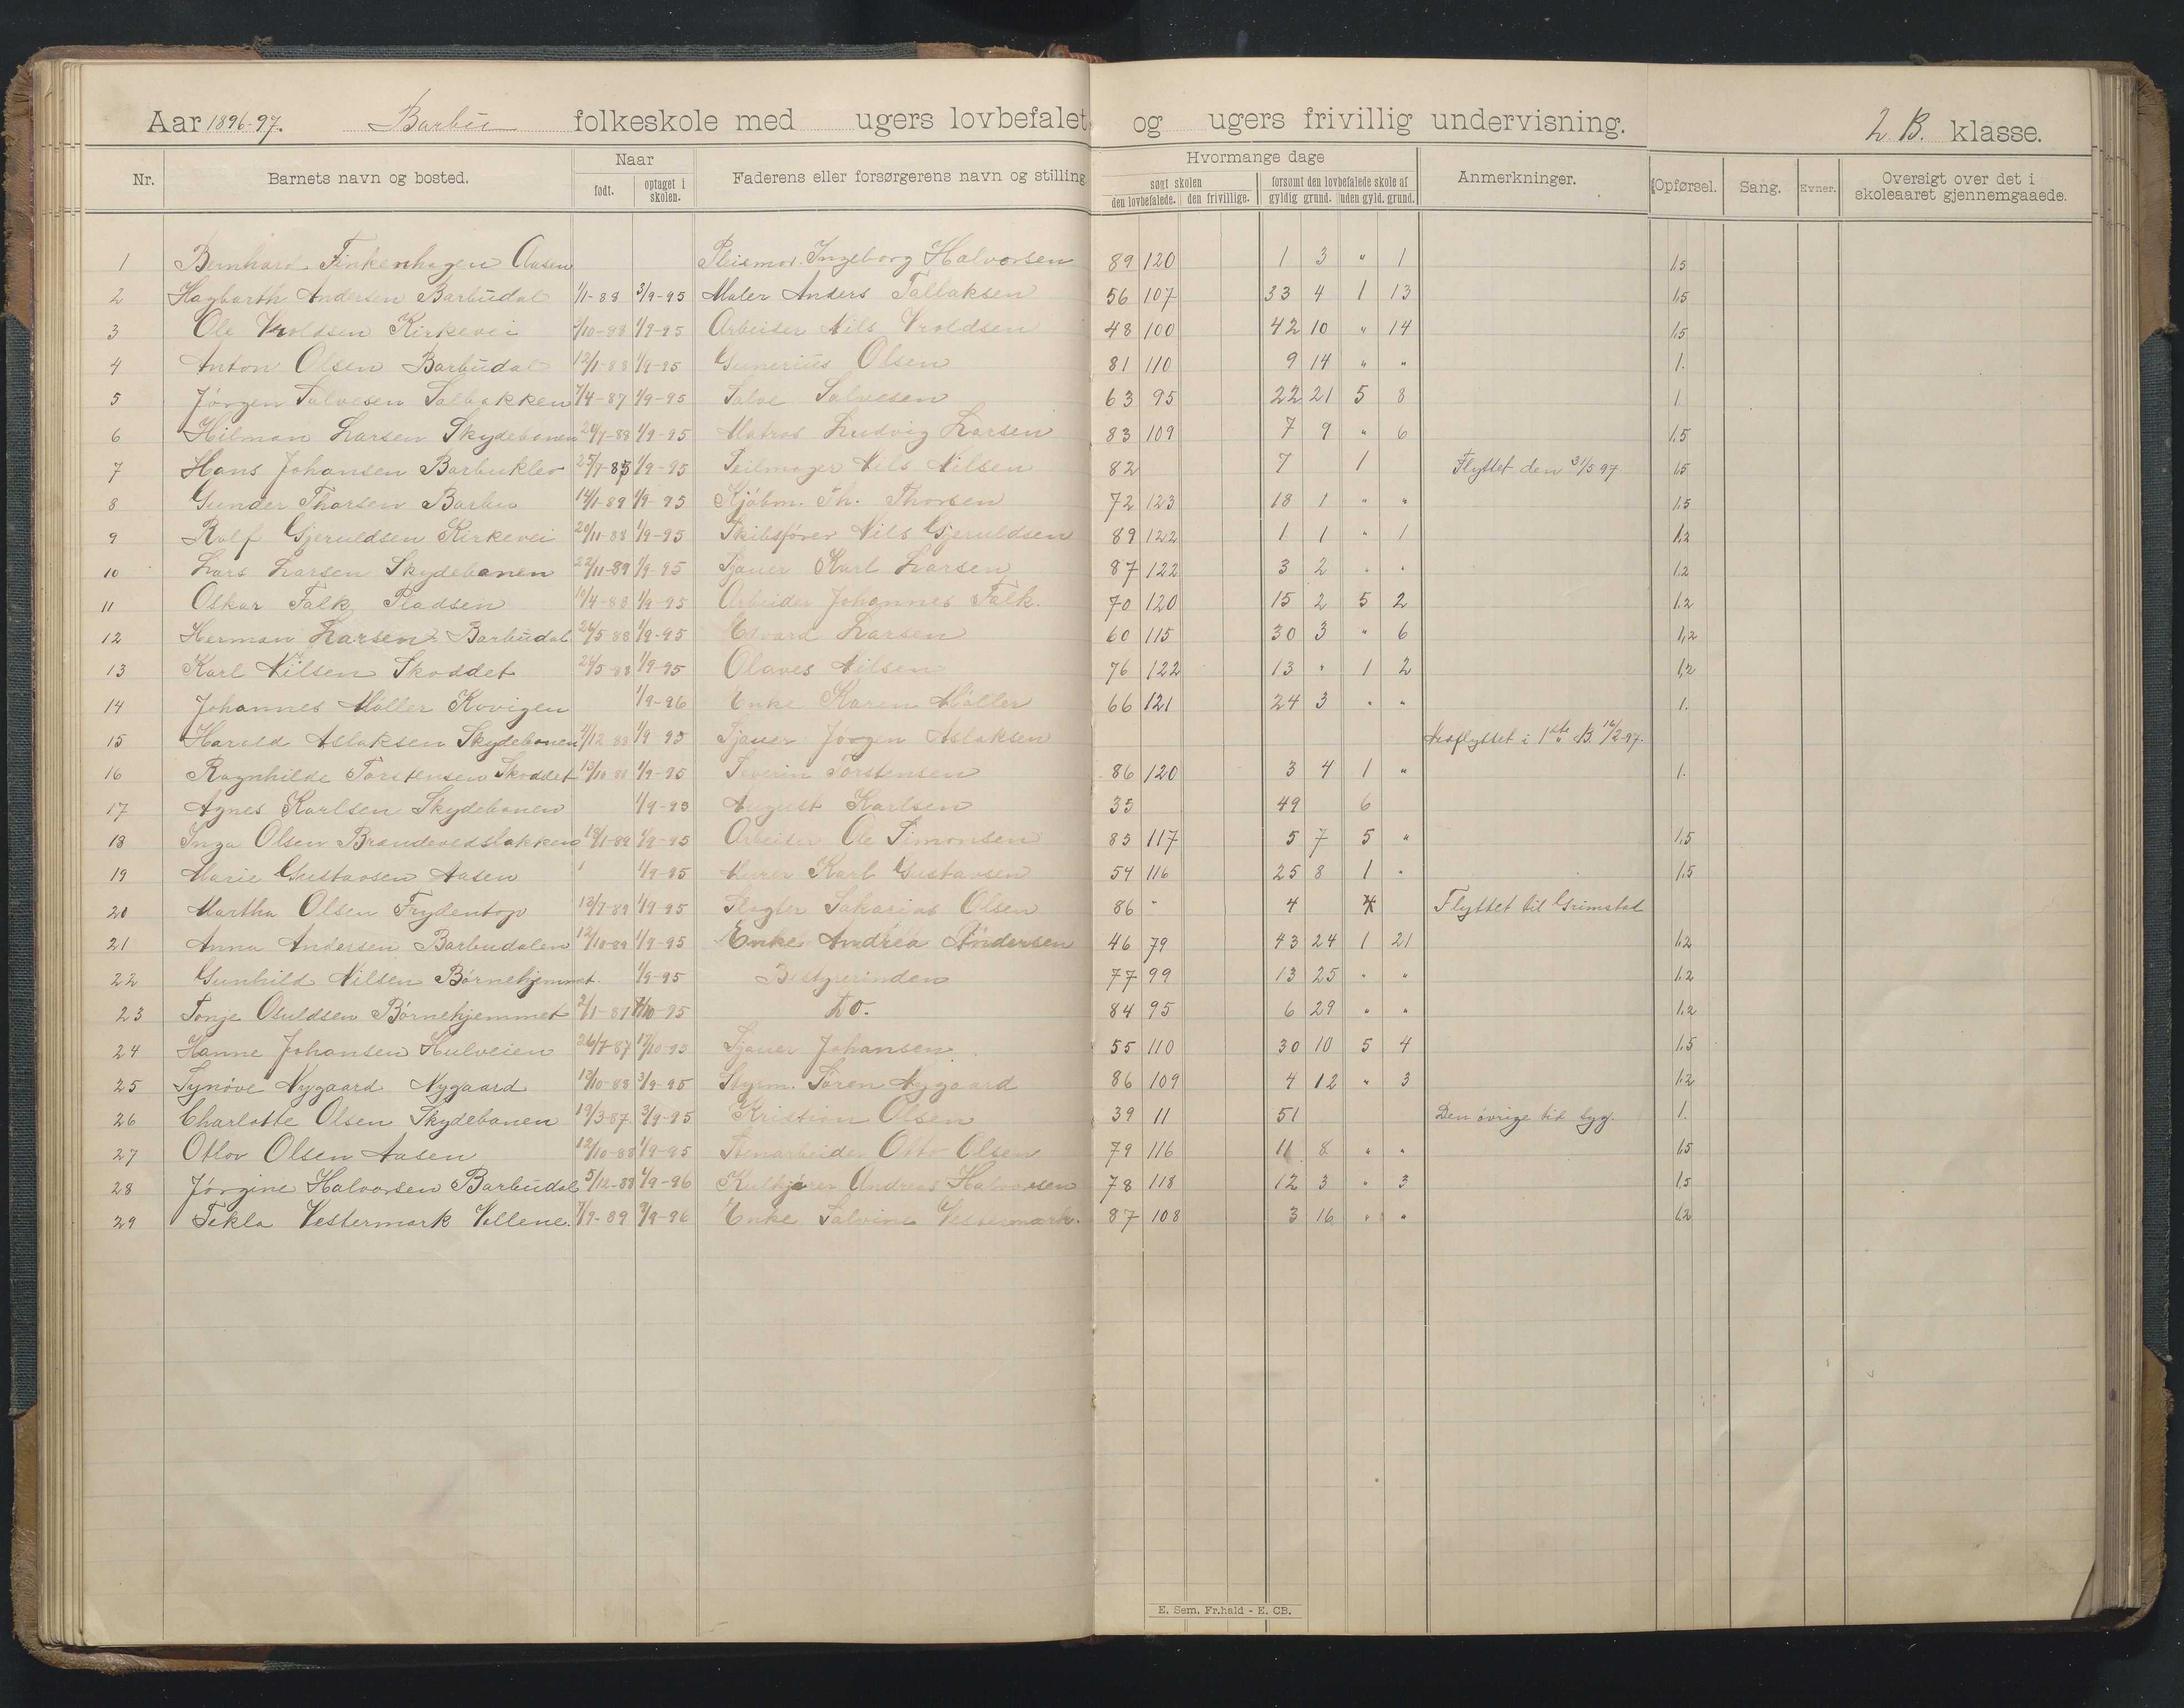 Aar 1896-97. Barbu folkeskole med ugers lovbefalet og ugers frivillig undervisning. 2 B. klasse.
Nr. Barnets navn og bosted. Naar Faderens eller forsørgerens navn og stilling Hvormange dage Anmerkninger. Opførsel. Sang. Evner. Oversigt over det i skoleaaret gjennemgaaede.
født. optaget i skolen. søgt skolen forsømt den lovbefalede skole af
den lovbefalede. den frivillige. gyldig grund. uden gyld. grund.
1 Bernhard Finkenhagen Aasen Pleiemor. Ingeborg Halvorsen 89 120 1 3 " 1 1.5
2 Hagbarth Andersen Barbudal 1/1-88 3/9-95 Maler Anders Tallaksen 56 107 33 4 1 13 1.5
3 Ole Vroldsen Kirkevei /10-88 1/9-95 Arbeider Nils Vroldsen 48 100 42 10 " 14 1.5
4 Anton Olsen Barbudal 12/1-88 1/9-95 Gunerius Olsen 81 110 9 14 " " 1.
5 Jörgen Salvesen Solbakken 7/4-87 1/9-95 Salve Salvesen 63 95 22 21 5 8 1
6 Hilman Larsen Skydebanen 20/7-88 1/9-95 Matros Ludvig Larsen 83 109 7 9 " 6 1.5
7 Hans Johansen Barbuklev 25/7-85 1/9-95 Seilmager Nils Nilsen 82 7 1 Flyttet den 31/5 97. 1.5
8 Gunder Thorsen Barbu 14/1-89 1/9-95 Kjöbm. Th. Thorsen 72 123 18 1 " " 1.5
9 Rolf Gjeruldsen Kirkevei 20/11-88 1/9-95 Skibsfører Nils Gjeruldsen 89 122 1 1 " 1 1.2
10 Lars Larsen Skydebanen 22/11-89 1/9-95 Sjauer Karl Larsen 87 122 3 2 " " 1.2
11 Oskar Falk Pladsen 10/4-88 1/9-95 Arbeider Johannes Falk. 70 120 15 2 5 2 1.2
12 Herman Larsen Barbudal 24/5-88 1/9-95 Edvard Larsen 60 115 30 3 " 6 1,2
13 Karl Nilsen Skoddet 24/5-88 1/9-95 Olaves Nilsen 76 122 13 " 1 2 1,2
14 Johannes Møller Kovigen 1/9-96 Enke Karen Møller 66 121 24 3 " " 1.
15 Harald Aslaksen Skydebanen /12-88 1/9-95 Sjauer Jörgen Aslaksen Nedflyttet i 1ste B. 16/2-97.
16 Ragnhilde Torstensen Skoddet 13/10-88 1/9-95 Severin Torstensen 86 120 3 4 1 " 1.
17 Agnes Karlsen Skydebanen 1/9-95 August Karlsen 35 49 6
18 Inga Olsen 18/1-89 1/9-95 Arbeider Ole Simonsen 83 117 5 7 5 " 1,5
19 Marie Gustavsen Aasen 1/9-95 Murer Karl Gustavsen 54 116 25 8 1 " 1.5
20 Martha Olsen Frydentop 13/7-89 1/9-95 Slagter Sakarias Olsen 86 - 4 Flyttet til Grimstad
21 Anna Andersen Barbudalen 12/10-89 1/9-95 Enke Andrea Andersen 46 79 43 24 1 21 1.2
22 Gunhild Nilsen Børnehjemmet. 1/9-95 Bestyrerinden 77 99 13 25 " " 1.2
23 Tonje Osuldsen Børnehjemmet 2/1-87 /10-95 do. 84 95 6 29 " " 1.2
24 Hanne Johansen Hulveien 26/7-87 17/10-95 Sjauer Johansen 55 110 30 10 5 4 1.5
25 Synøve Nygaard Nygaard 13/10-88 3/9-95 Styrm. Søren Nygaard 86 109 4 12 " 3 1.2
26 Charlotte Olsen Skydebanen 19/3-87 3/9-95 Kristian Olsen 39 11 51 Den øvrige tid syg. 1.
27 Otlov Olsen Aasen 12/10-88 1/9-95 Stenarbeider Olsen 79 116 11 8 " " 1.5
28 Jørgine Halvorsen Barbudal 5/12-88 /9-96 Kulkjører Andreas Halvorsen 78 118 12 3 " 3 1.5
29 Tekla Vestermark Vollene. 7/9-89 3/9-96 Enke Salvine Vestermark. 87 108 3 16 " " 1.2
E. Sem, Fr.hald - E. CB.